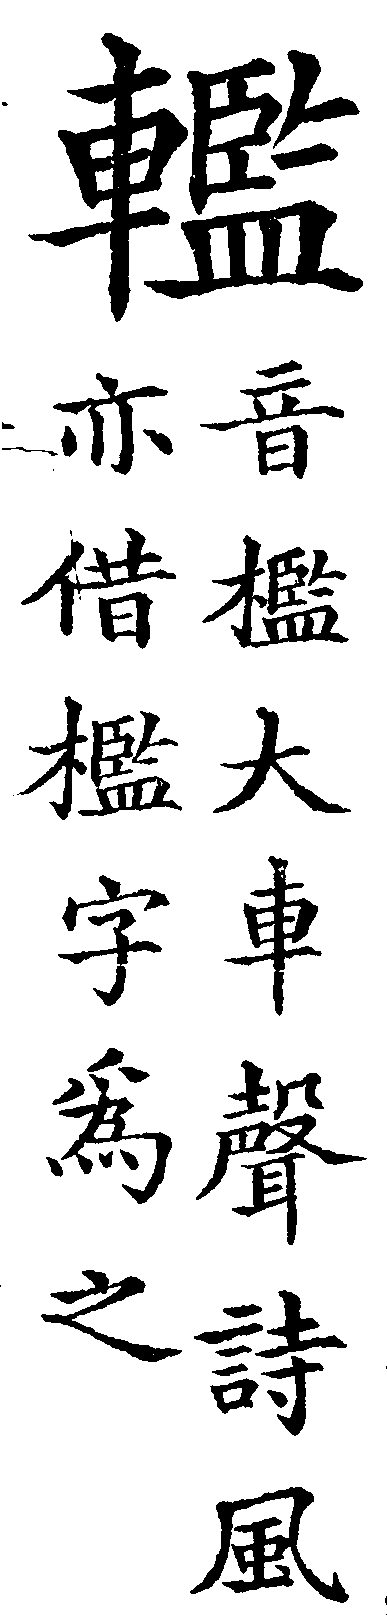 轞
音檻大車聲詩風
亦借檻字為之